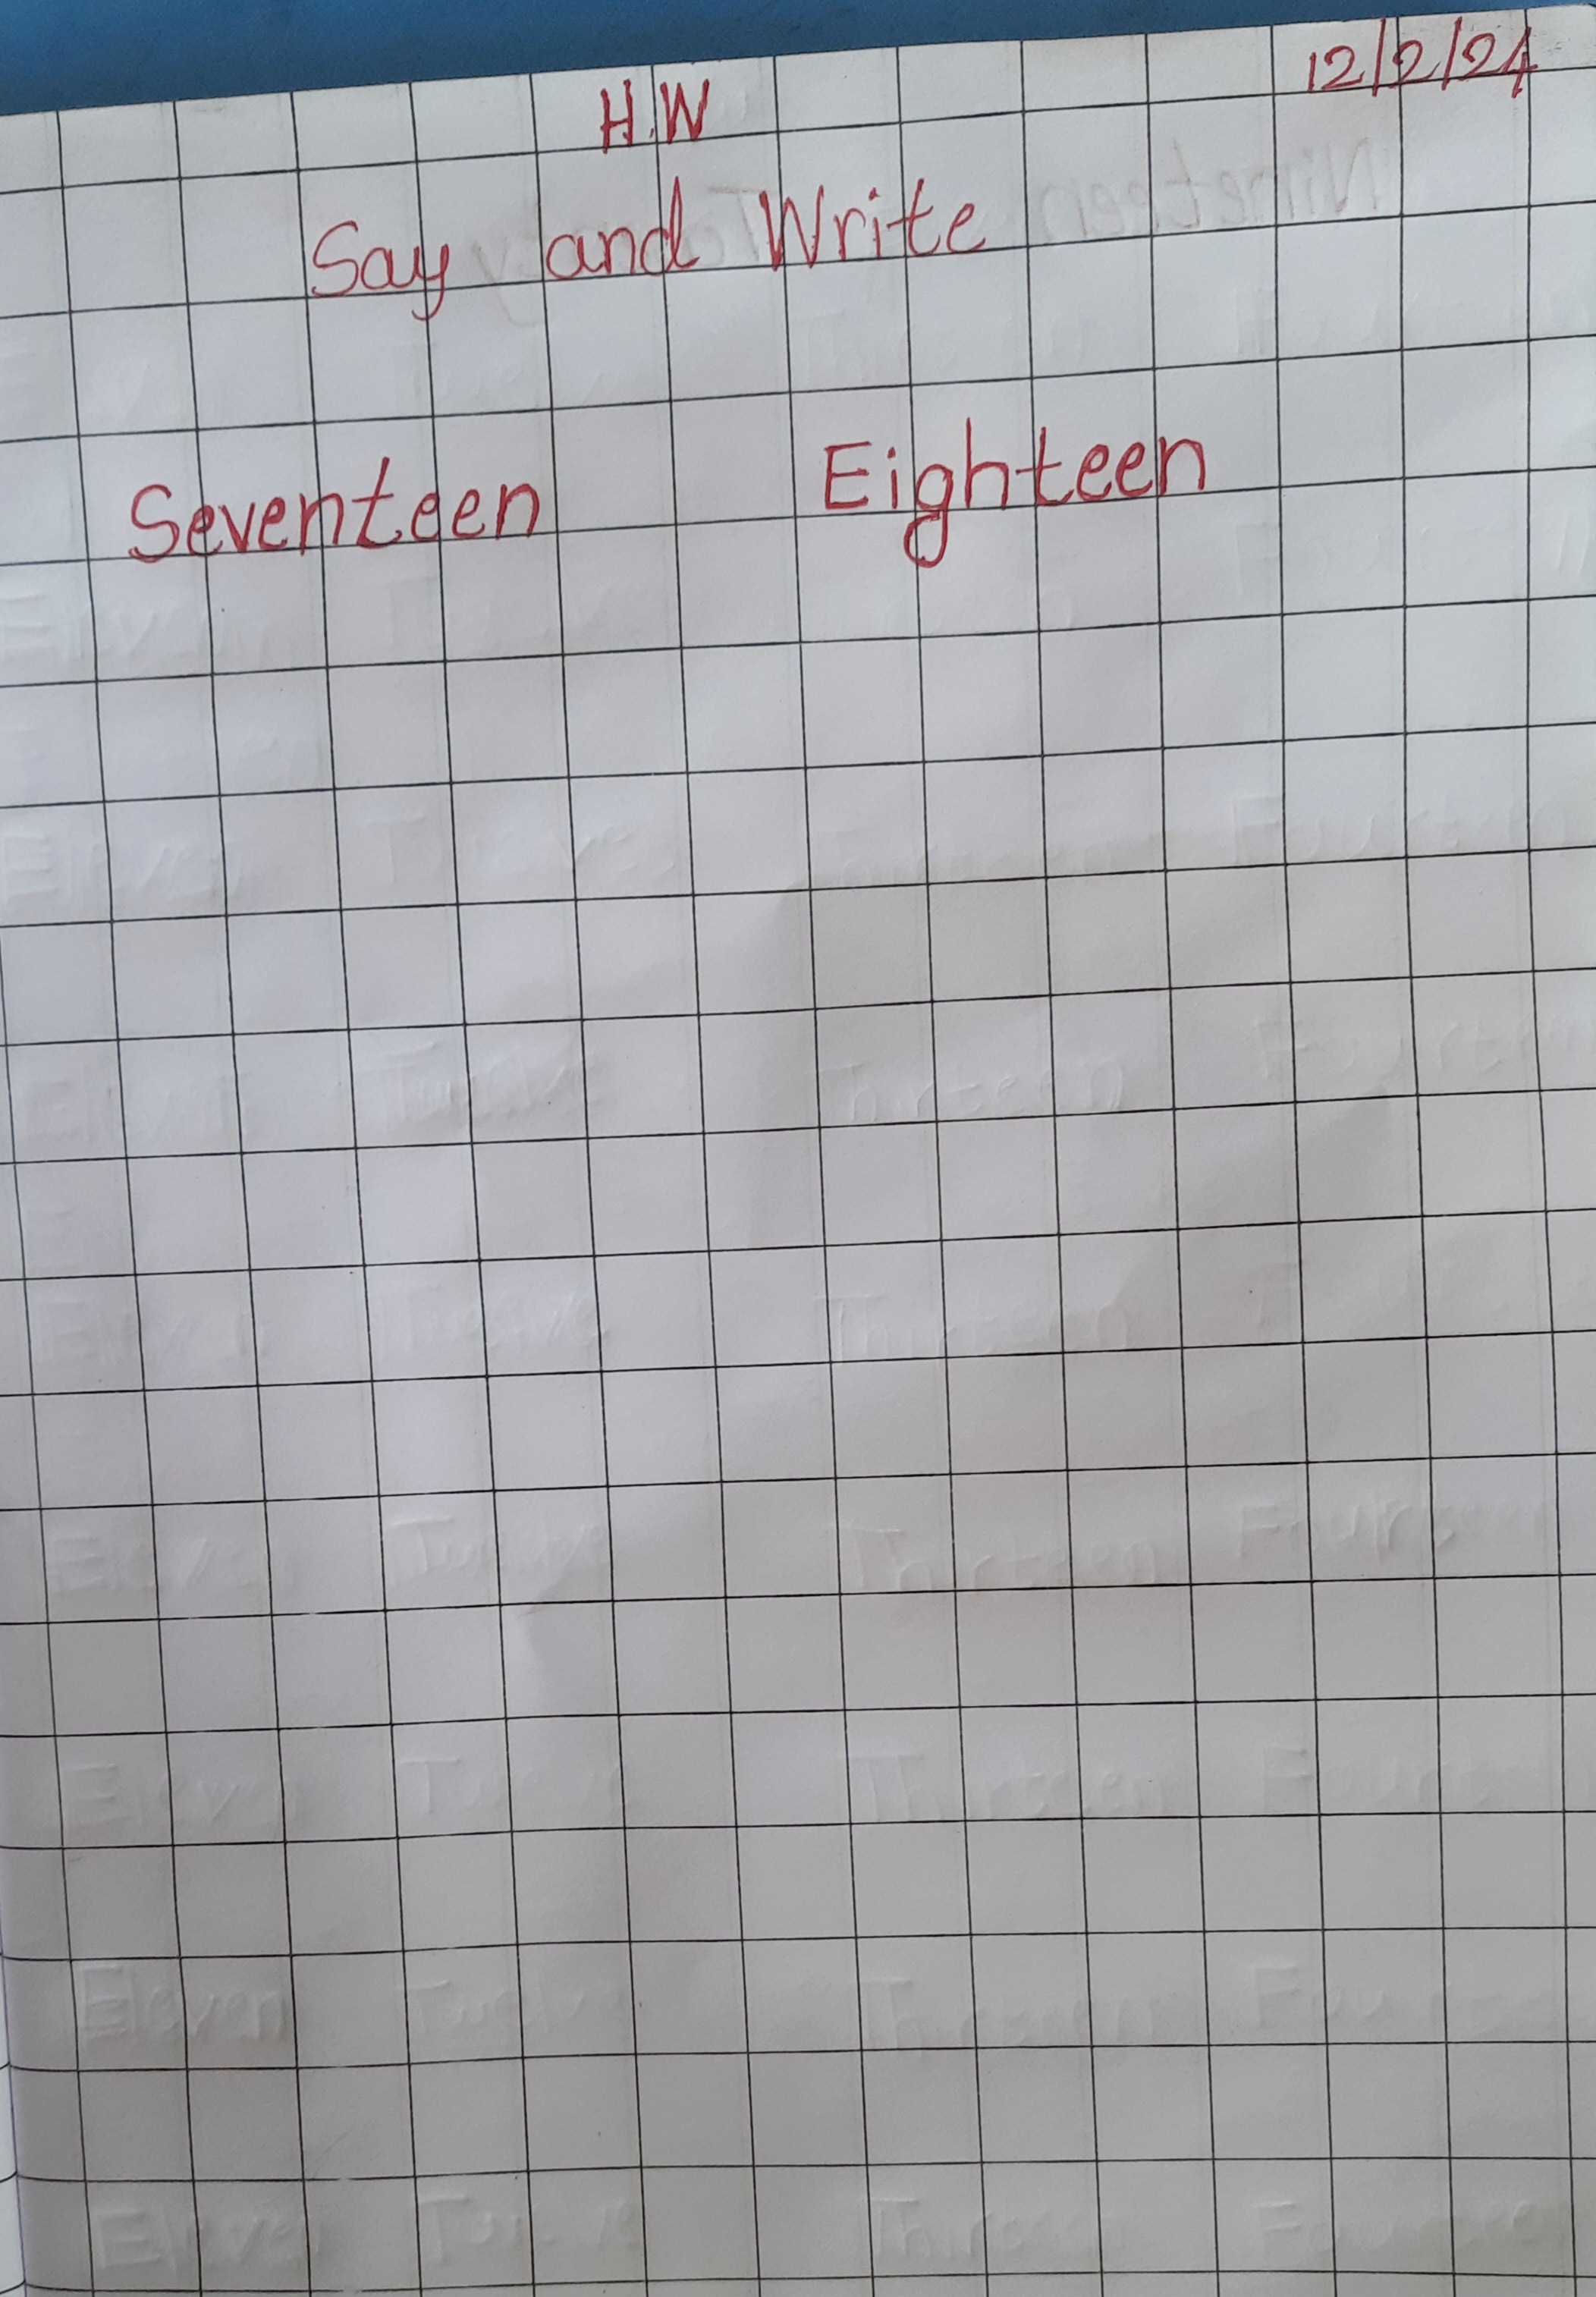 12/2/24
H.W
Say and Write
Seventeen Eighteen